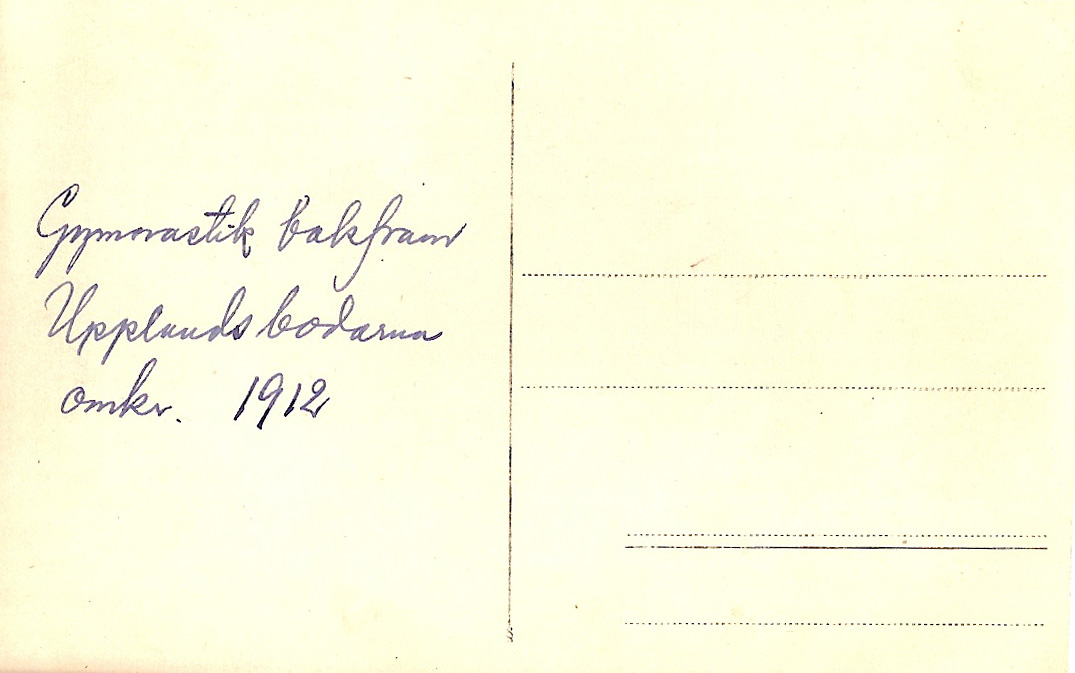 Gymnastik bakfram
Upplandsbodarna
omkr. 1912